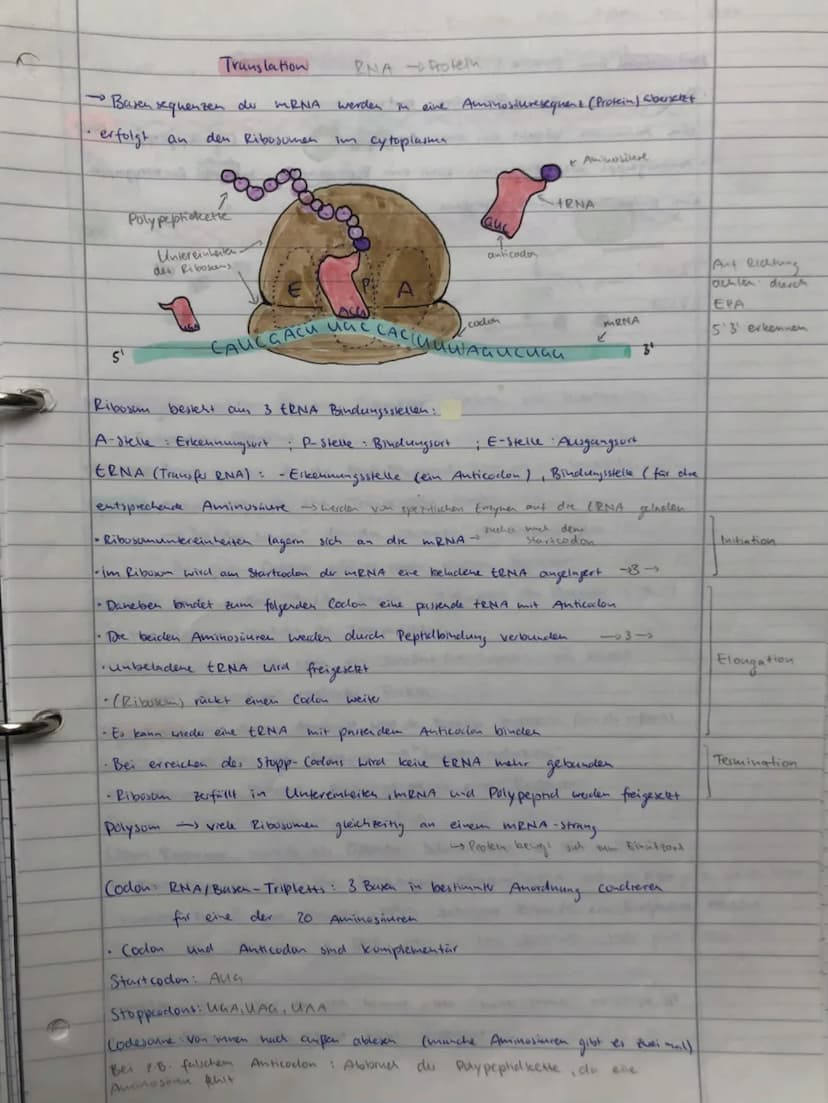 Translation RNA → Protein
→ Basensequenzen der mRNA werden in eine Aminosäuresequenz (Protein) übersetzt
· erfolgt an den Ribosomen im Cytoplasma
Aminosäure
tRNA
AUC
anticodon
Polypeptidkette
Untereinheiten
des Ribosoms
E P A
codon
mRNA
5' 3'
Auf Richtung
achten durch
EPA
5' 3' erkennen
Ribosom besteht aus 3 tRNA Bindungsstellen:
A-Stelle: Erkennungsort ; P-Stelle: Bindungsort ; E-Stelle: Ausgangsort
tRNA (Transfer RNA): - Erkennungsstelle (ein Anticodon), Bindungsstelle (für die
entsprechende Aminosäure → werden von spezifischen Enzymen auf die tRNA geladen
· Ribosomuntereinheiten lagern sich an die mRNA → suchen nach dem Startcodon
Initiation
· Im Ribosom wird am Startcodon der mRNA eine beladene tRNA angelagert
· Daneben bindet zum folgenden Codon eine passende tRNA mit Anticodon
· Die beiden Aminosäuren werden durch Peptidbindung verbunden
Elongation
· Unbeladene tRNA wird freigesetzt
· (Ribosom) rückt einen Codon weiter
· Es kann wieder eine tRNA mit passendem Anticodon binden
· Bei erreichen des Stopp-Codons wird keine tRNA mehr gebunden
Termination
· Ribosom zerfällt in Untereinheiten, mRNA und Polypeptid werden freigesetzt
Polysom → viele Ribosomen gleichzeitig an einem mRNA-Strang
→ Protein bewegt sich zum Einsatzort
Codon: RNA/Basen-Tripletts: 3 Basen in bestimmter Anordnung codieren
für eine der 20 Aminosäuren
· Codon und Anticodon sind komplementär
Startcodon: AUG
Stoppcodons: UGA, UAG, UAA
Codesonne von innen nach außen ablesen (manche Aminosäuren gibt es zwei mal)
Bei z.B. falschem Anticodon: Abbruch der Polypeptidkette, da eine
Aminosäure fehlt